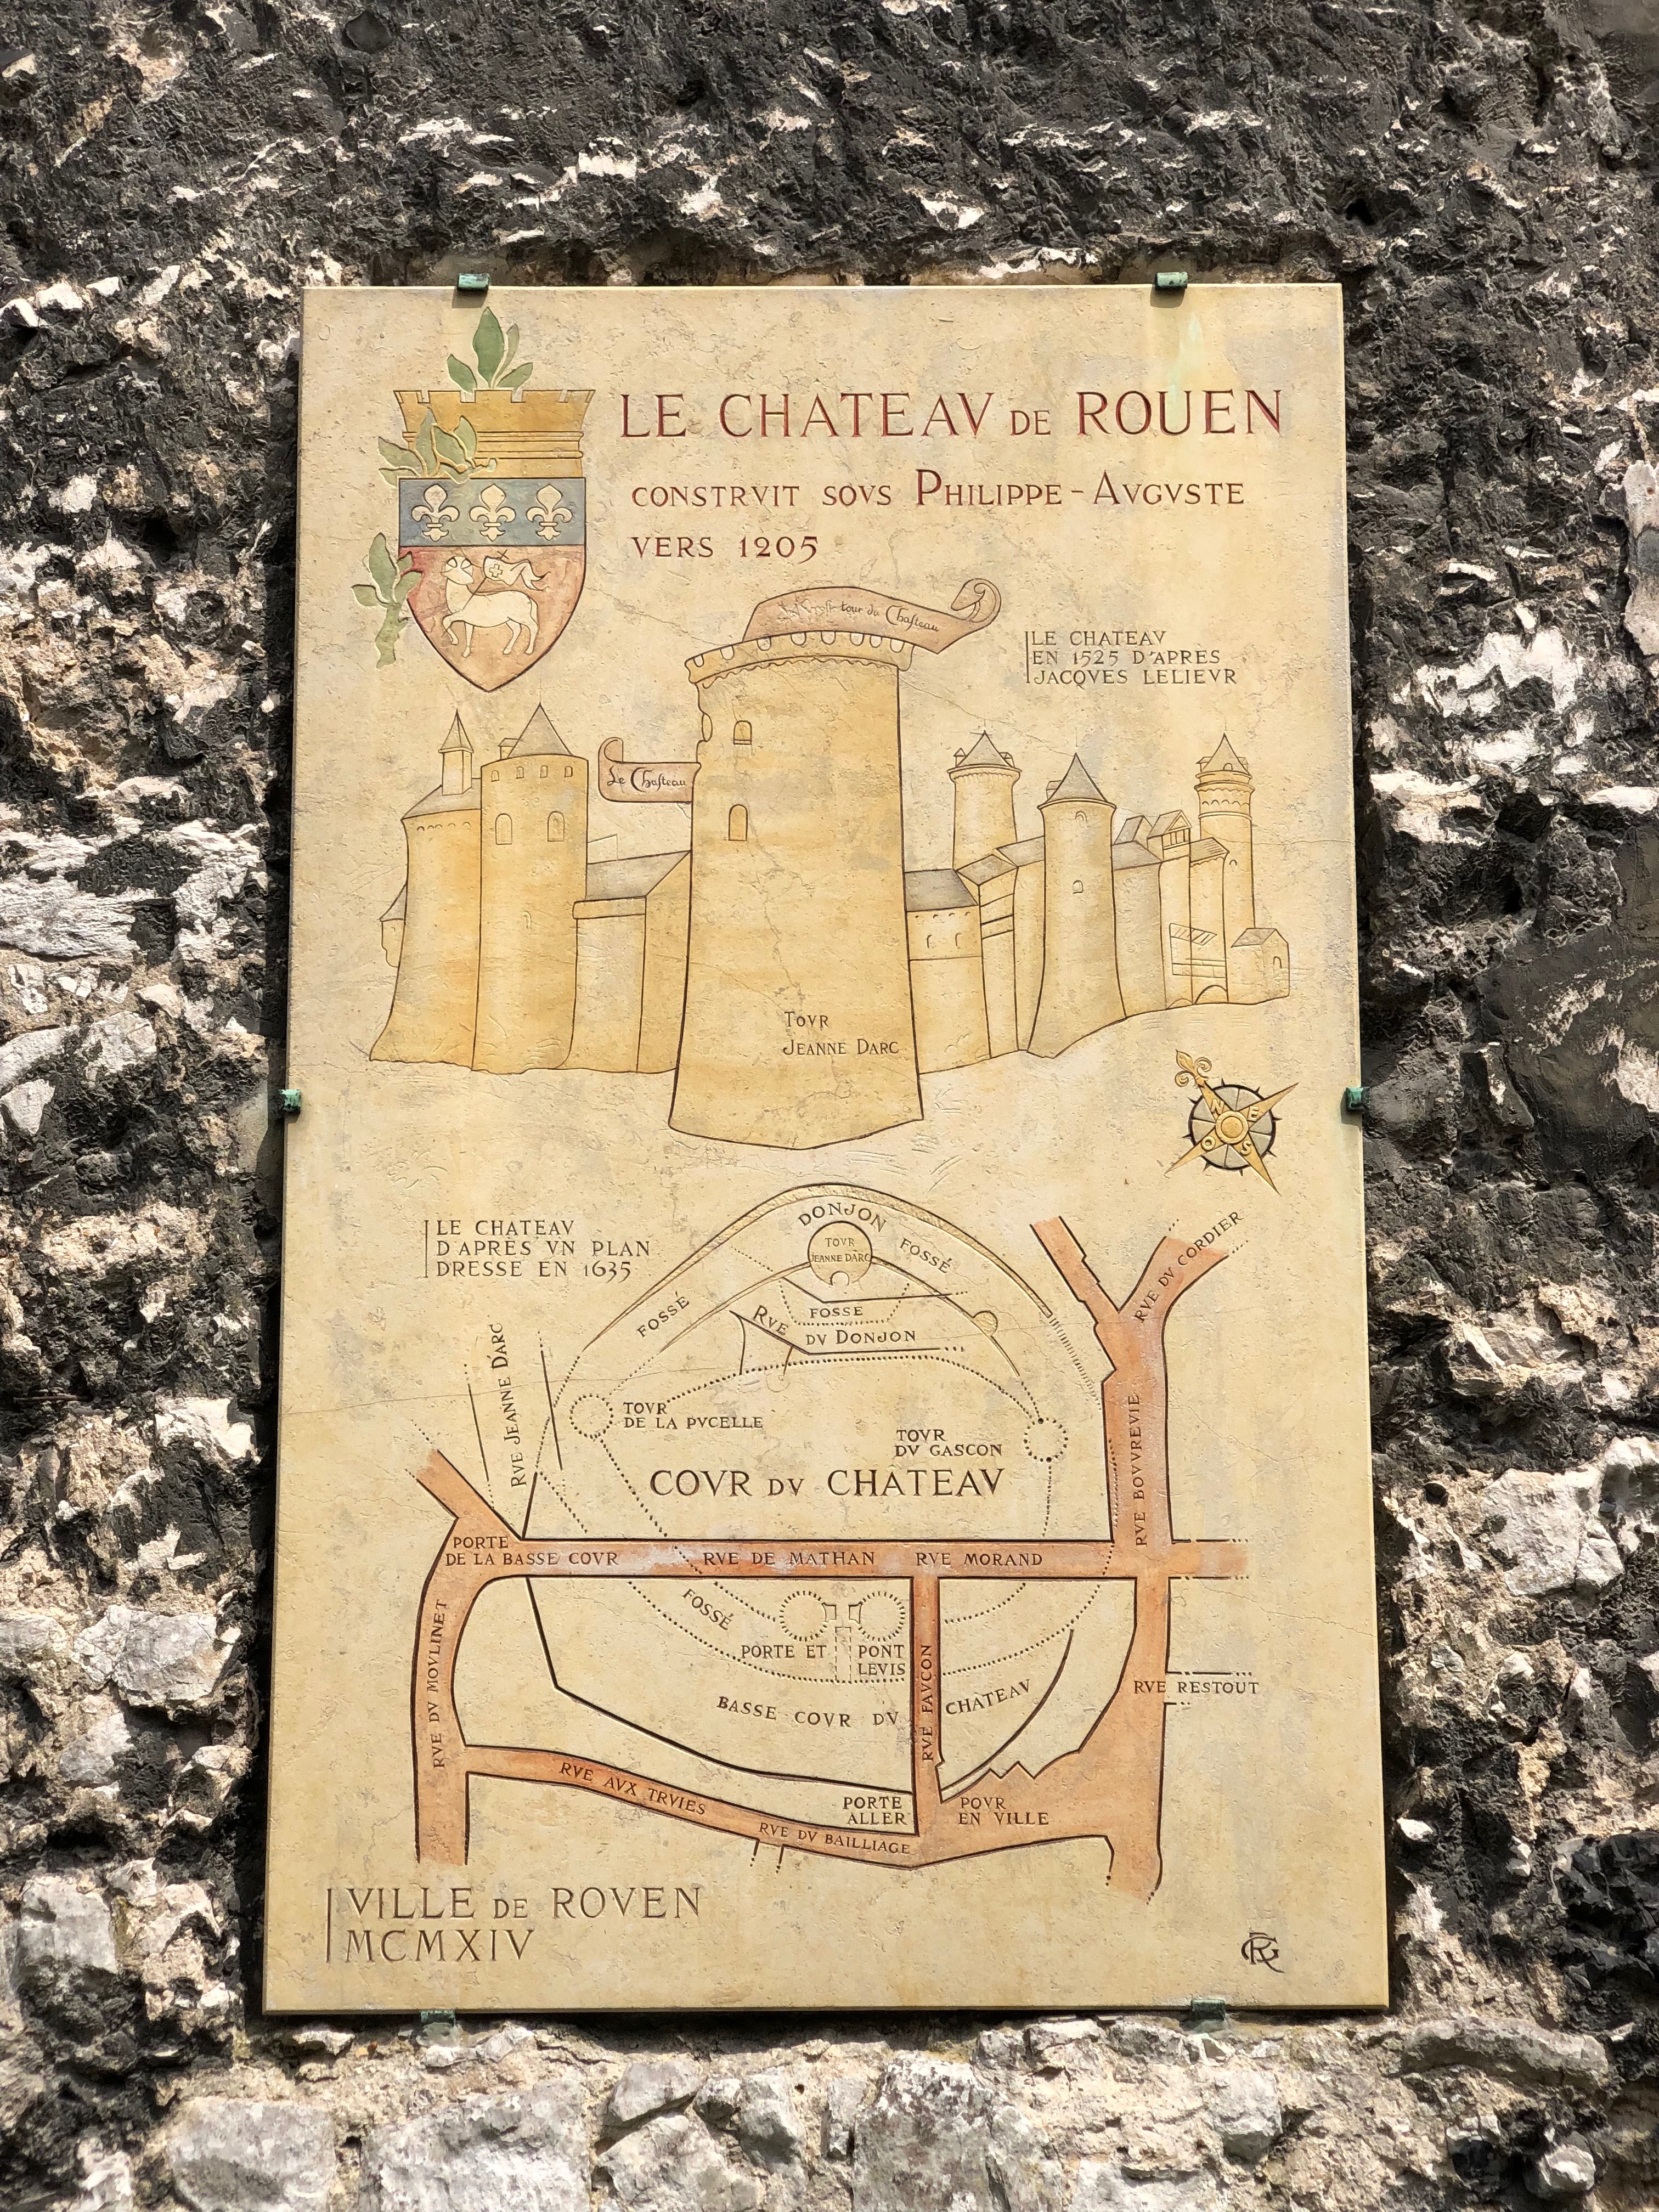 LE CHATEAV DE ROUEN
CONSTRVIT SOVS PHILIPPE-AVGVSTE
VERS 1205
tour du Chasteau
LE CHATEAV
EN 1525 D'APRES
JACQVES LELIEVR
Le Chasteau
TOVR
JEANNE DARC
N
E
S
O
LE CHATEAV
D'APRÈS VN PLAN
DRESSE EN 1635
DONJON
TOVR
JEANNE DARC
FOSSÉ
FOSSÉ
FOSSE
RVE DV DONJON
RVE DV CORDIER
RVE JEANNE D'ARC
TOVR
DE LA PVCELLE
TOVR
DV GASCON
COVR DV CHATEAV
RVE BOVVREVIE
PORTE
DE LA BASSE COVR
RVE DE MATHAN
RVE MORAND
FOSSÉ
PORTE ET PONT
LEVIS
RVE DV MOVLINET
RVE FAVCON
RVE RESTOUT
BASSE COVR DV CHATEAV
RVE AVX TRVIES
PORTE POVR
ALLER EN VILLE
RVE DV BAILLIAGE
VILLE DE ROVEN
MCMXIV